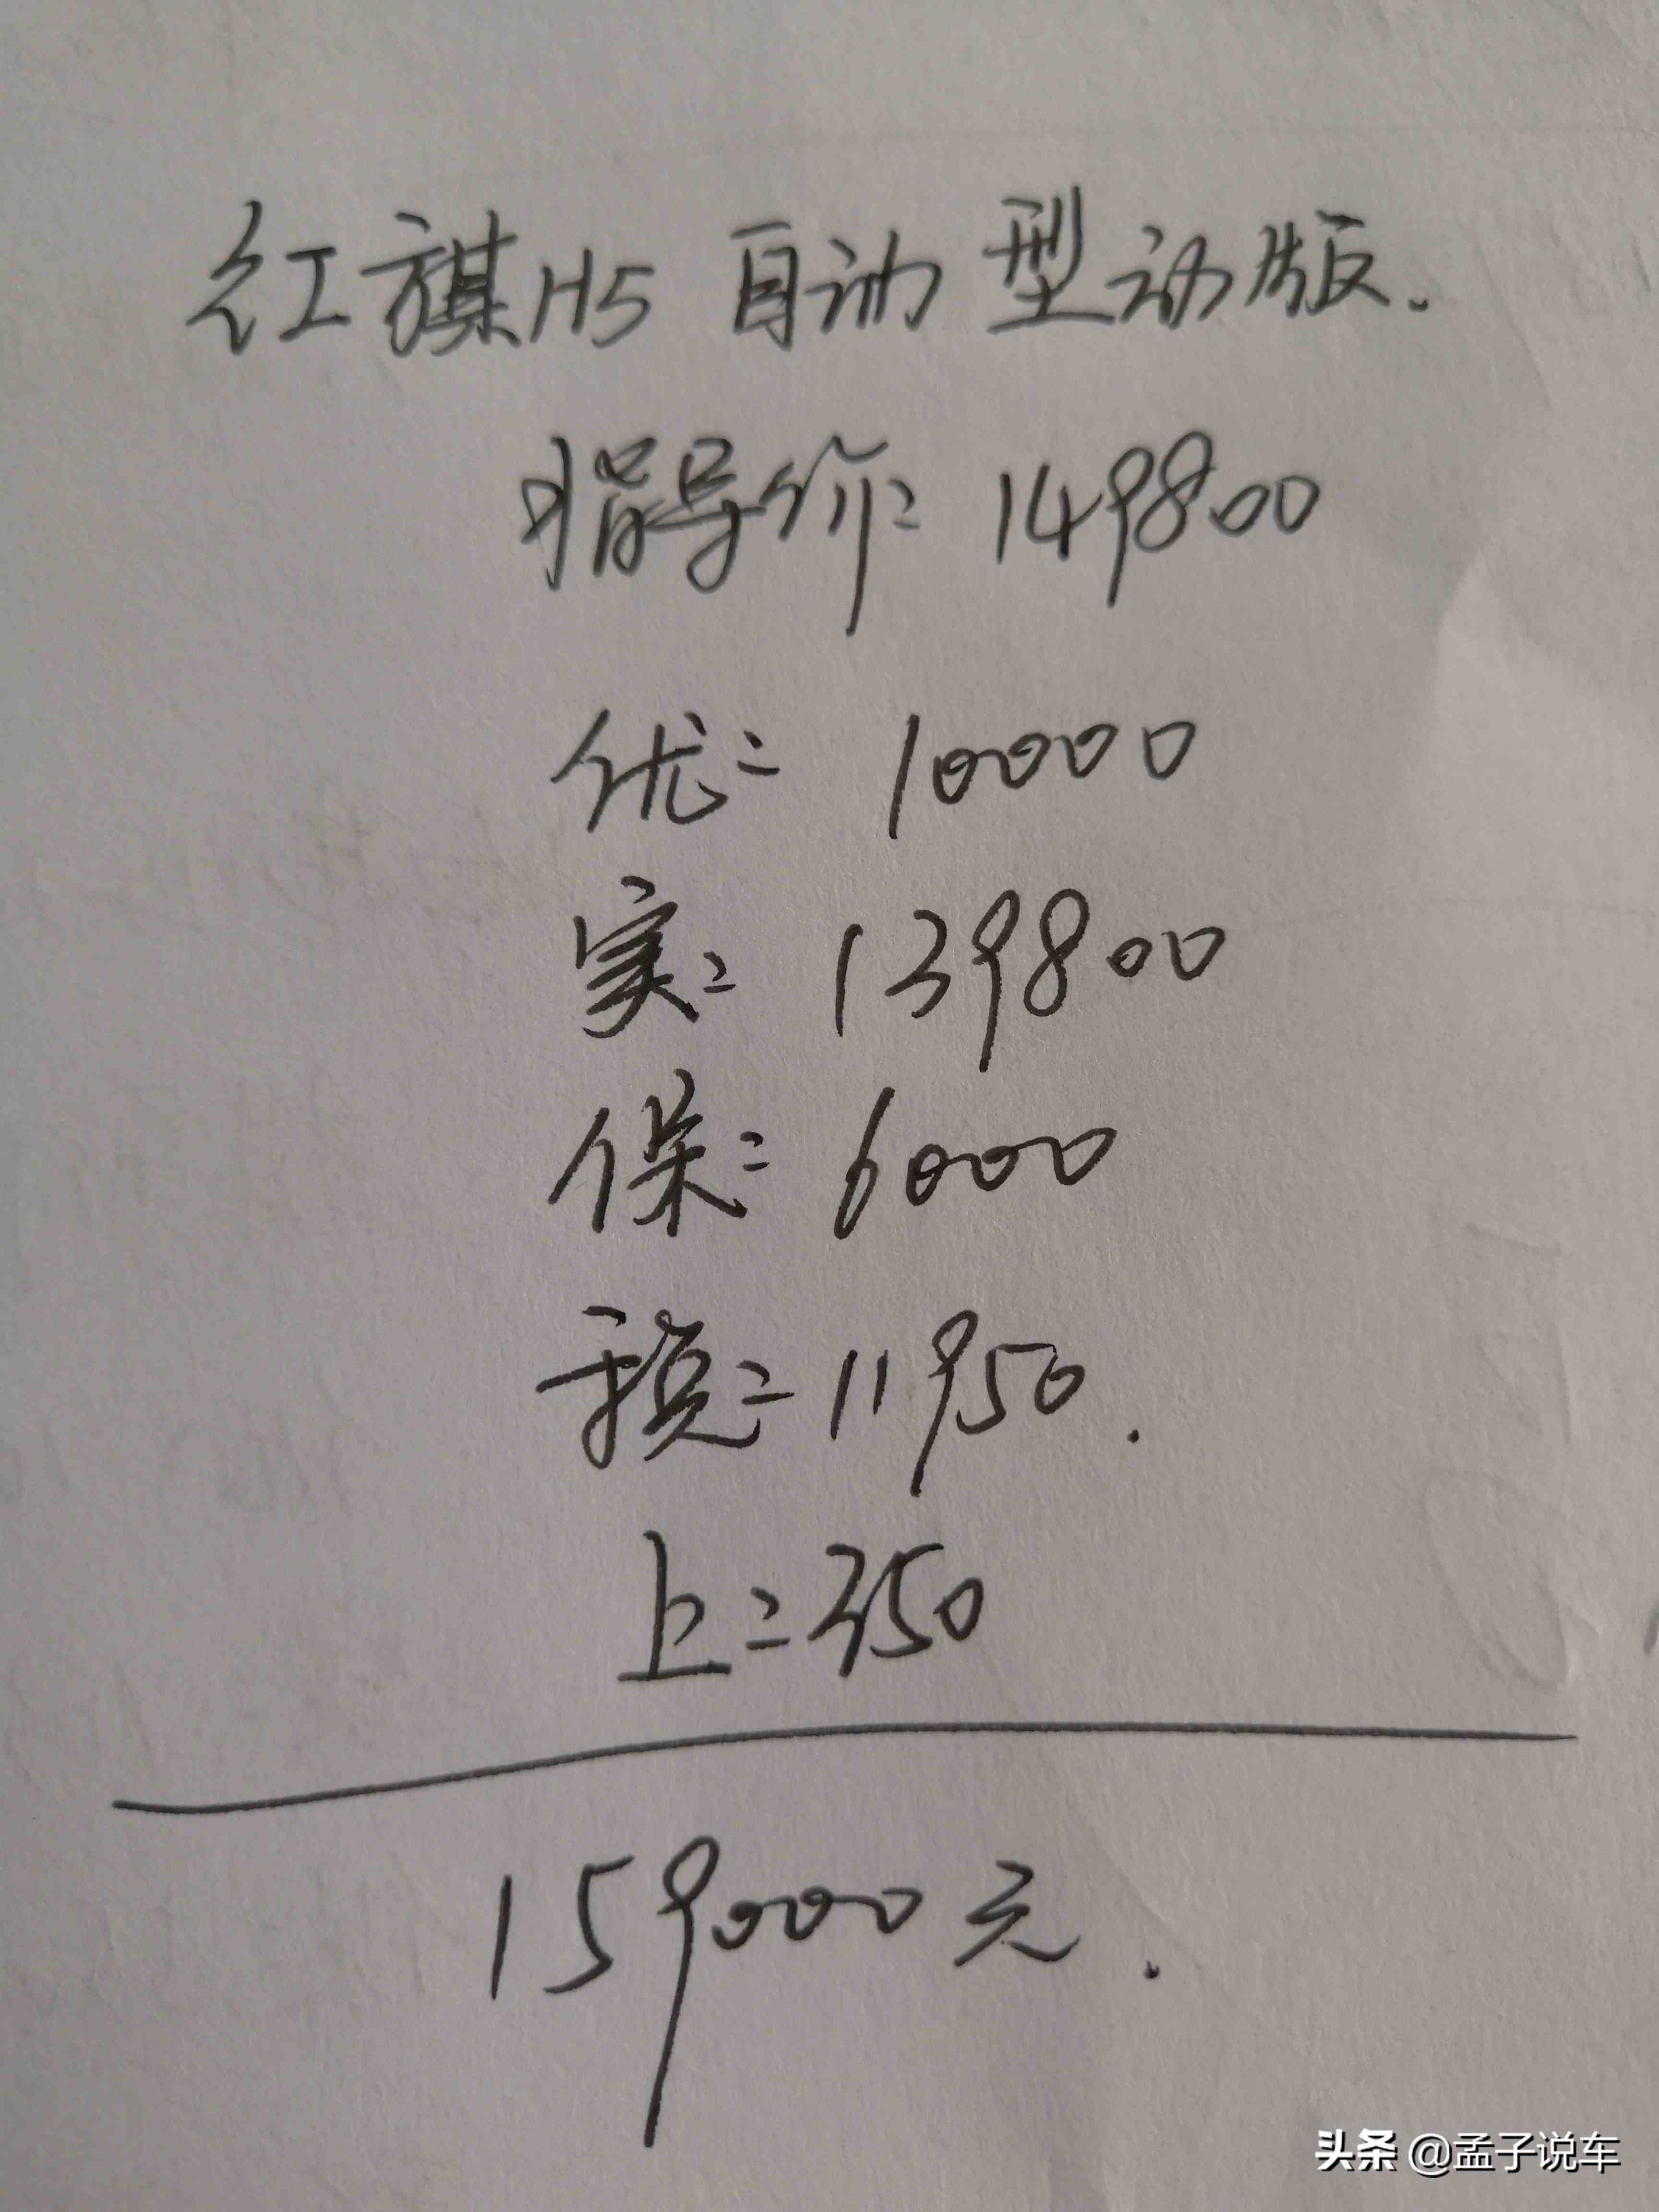 红旗H5 自动 型动版.
指导价: 149800
优: 10000
实: 139800
保: 6000
税: 11950.
上: 350
159000元.
头条 @孟子说车